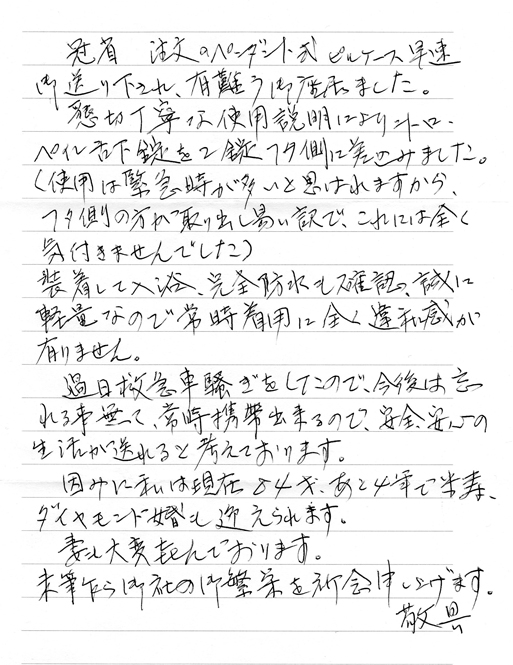 冠省 注文のペンダント式ピルケース早速
御送り下され、有難う御座居ました。
懇切丁寧な使用説明によりニトロ・
ペイル舌下錠を2錠フタ側に差込みました。
(使用は緊急時が多いと思はれますから、
フタ側の方が取り出し易い訳で、これには全く
気付きませんでした)
装着して入浴、完全防水も確認、誠に
軽量なので常時着用に全く違和感が
有りません。
過日救急車騒ぎをしたので、今後は忘
れる事無く、常時携帯出来るので、安全、安心の
生活が送れると考えております。
因みに私は現在84才、あと4年で米寿、
ダイヤモンド婚も迎えられます。
妻も大変喜んでおります。
末筆乍ら御社の御繁栄を祈念申し上げます。
敬具